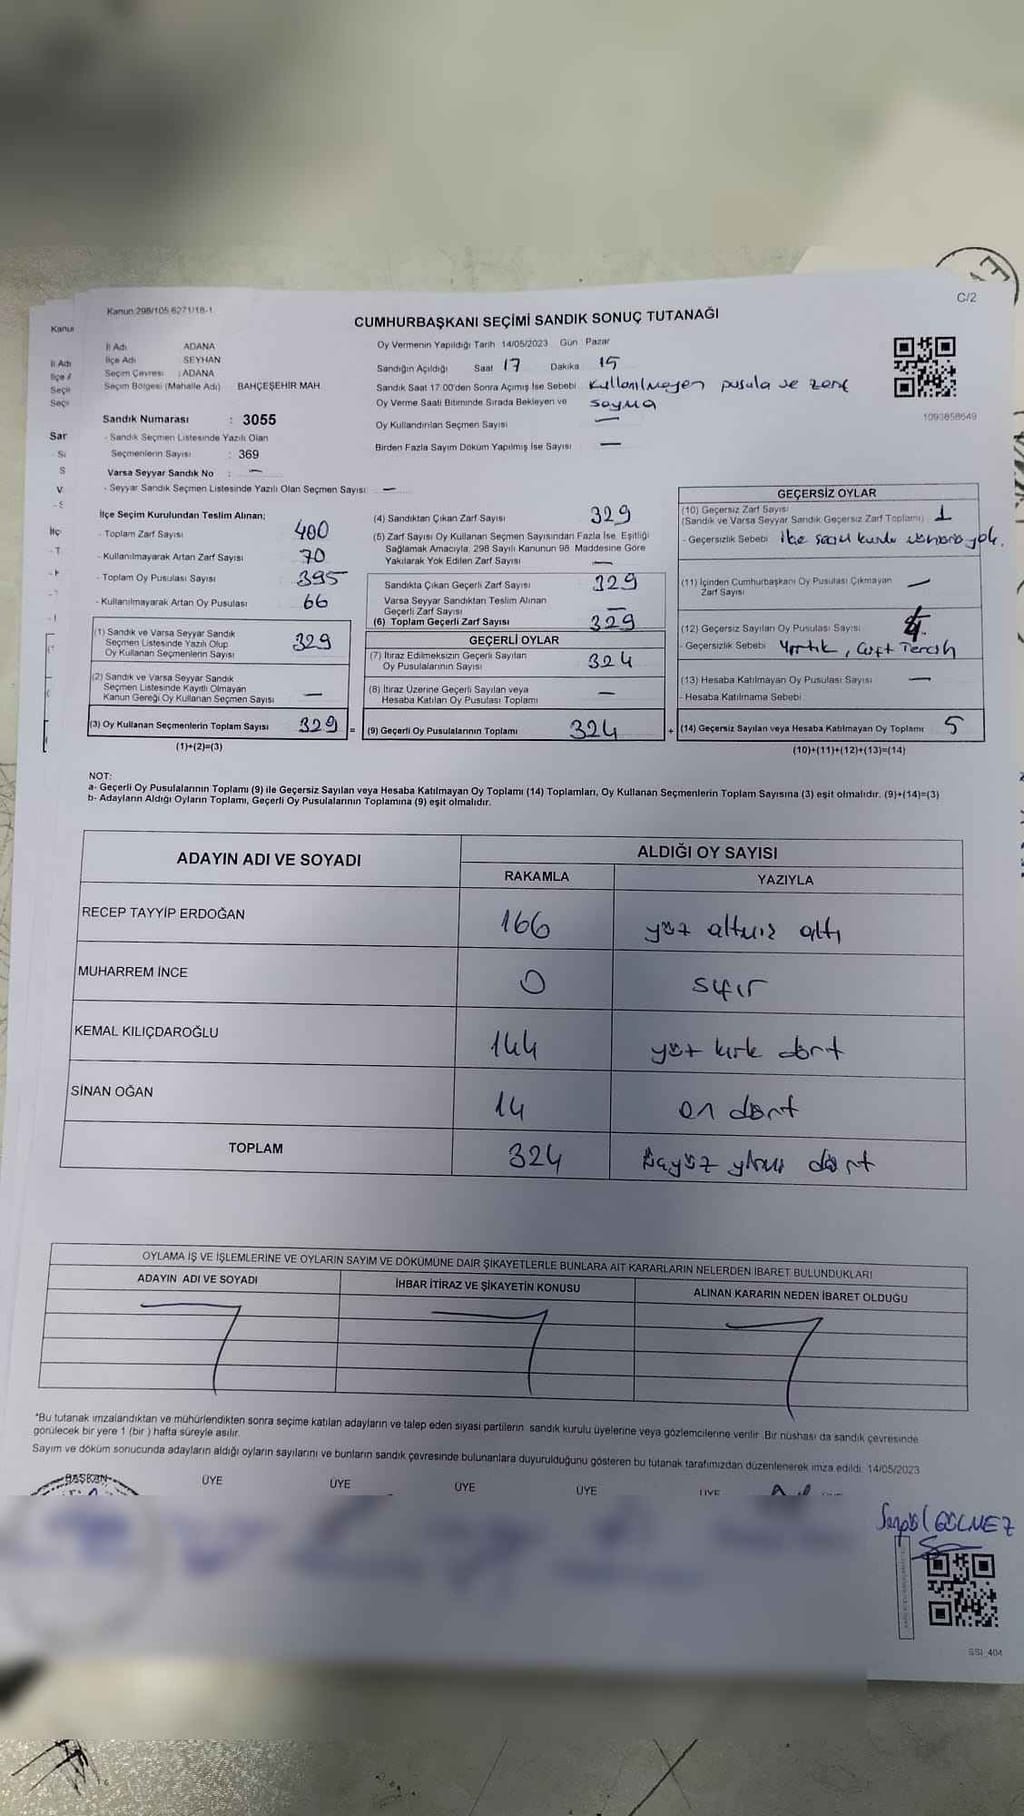 Kanun:298/105 6271/18-1
C/2
CUMHURBAŞKANI SEÇİMİ SANDIK SONUÇ TUTANAĞI
İl Adı ADANA
İlçe Adı SEYHAN
Seçim Çevresi : ADANA
Seçim Bölgesi (Mahalle Adı) BAHÇEŞEHİR MAH.
Sandık Numarası : 3055
- Sandık Seçmen Listesinde Yazılı Olan
Seçmenlerin Sayısı : 369
Varsa Seyyar Sandık No : —
- Seyyar Sandık Seçmen Listesinde Yazılı Olan Seçmen Sayısı —
Oy Vermenin Yapıldığı Tarih 14/05/2023 Gün Pazar
Sandığın Açıldığı Saat 17 Dakika 15
Sandık Saat 17.00'den Sonra Açımış İse Sebebi Kullanılmayan pusula ve zarf
Oy Verme Saati Bitiminde Sırada Bekleyen ve sayma
Oy Kullandırılan Seçmen Sayısı —
Birden Fazla Sayım Döküm Yapılmış İse Sayısı —
1093858649
İlçe Seçim Kurulundan Teslim Alınan;
- Toplam Zarf Sayısı 400
- Kullanılmayarak Artan Zarf Sayısı 70
- Toplam Oy Pusulası Sayısı 395
- Kullanılmayarak Artan Oy Pusulası 66
(1) Sandık ve Varsa Seyyar Sandık
Seçmen Listesinde Yazılı Olup
Oy Kullanan Seçmenlerin Sayısı 329
(2) Sandık ve Varsa Seyyar Sandık
Seçmen Listesinde Kayıtlı Olmayan
Kanun Gereği Oy Kullanan Seçmen Sayısı —
(3) Oy Kullanan Seçmenlerin Toplam Sayısı 329 =
(1)+(2)=(3)
(4) Sandıktan Çıkan Zarf Sayısı 329
(5) Zarf Sayısı Oy Kullanan Seçmen Sayısından Fazla İse, Eşitliği
Sağlamak Amacıyla, 298 Sayılı Kanunun 98. Maddesine Göre
Yakılarak Yok Edilen Zarf Sayısı —
Sandıkta Çıkan Geçerli Zarf Sayısı 329
Varsa Seyyar Sandıktan Teslim Alınan
Geçerli Zarf Sayısı —
(6) Toplam Geçerli Zarf Sayısı 329
GEÇERLİ OYLAR
(7) İtiraz Edilmeksizin Geçerli Sayılan
Oy Pusulalarının Sayısı 324
(8) İtiraz Üzerine Geçerli Sayılan veya
Hesaba Katılan Oy Pusulası Toplamı —
(9) Geçerli Oy Pusulalarının Toplamı 324 +
GEÇERSİZ OYLAR
(10) Geçersiz Zarf Sayısı
(Sandık ve Varsa Seyyar Sandık Geçersiz Zarf Toplamı) 1
- Geçersizlik Sebebi İlçe seçim kurulu yok.
(11) İçinden Cumhurbaşkanı Oy Pusulası Çıkmayan
Zarf Sayısı —
(12) Geçersiz Sayılan Oy Pusulası Sayısı 4.
- Geçersizlik Sebebi Yırtık, Çift Tercih
(13) Hesaba Katılmayan Oy Pusulası Sayısı —
- Hesaba Katılmama Sebebi
(14) Geçersiz Sayılan veya Hesaba Katılmayan Oy Toplamı 5
(10)+(11)+(12)+(13)=(14)
NOT:
a- Geçerli Oy Pusulalarının Toplamı (9) ile Geçersiz Sayılan veya Hesaba Katılmayan Oy Toplamı (14) Toplamları, Oy Kullanan Seçmenlerin Toplam Sayısına (3) eşit olmalıdır. (9)+(14)=(3)
b- Adayların Aldığı Oyların Toplamı, Geçerli Oy Pusulalarının Toplamına (9) eşit olmalıdır.
ADAYIN ADI VE SOYADI
ALDIĞI OY SAYISI
RAKAMLA YAZIYLA
RECEP TAYYİP ERDOĞAN 166 yüz altmış altı
MUHARREM İNCE 0 sıfır
KEMAL KILIÇDAROĞLU 144 yüz kırk dört
SİNAN OĞAN 14 on dört
TOPLAM 324 üçyüz yirmi dört
OYLAMA İŞ VE İŞLEMLERİNE VE OYLARIN SAYIM VE DÖKÜMÜNE DAİR ŞİKAYETLERLE BUNLARA AİT KARARLARIN NELERDEN İBARET BULUNDUKLARI
ADAYIN ADI VE SOYADI
İHBAR İTİRAZ VE ŞİKAYETİN KONUSU
ALINAN KARARIN NEDEN İBARET OLDUĞU
*Bu tutanak imzalandıktan ve mühürlendikten sonra seçime katılan adayların ve talep eden siyasi partilerin sandık kurulu üyelerine veya gözlemcilerine verilir. Bir nüshası da sandık çevresinde
görülecek bir yere 1 (bir ) hafta süreyle asılır.
Sayım ve döküm sonucunda adayların aldığı oyların sayılarını ve bunların sandık çevresinde bulunanlara duyurulduğunu gösteren bu tutanak tarafımızdan düzenlenerek imza edildi. 14/05/2023
BAŞKAN ÜYE ÜYE ÜYE ÜYE ÜYE
GÖLMEZ
SSI_404